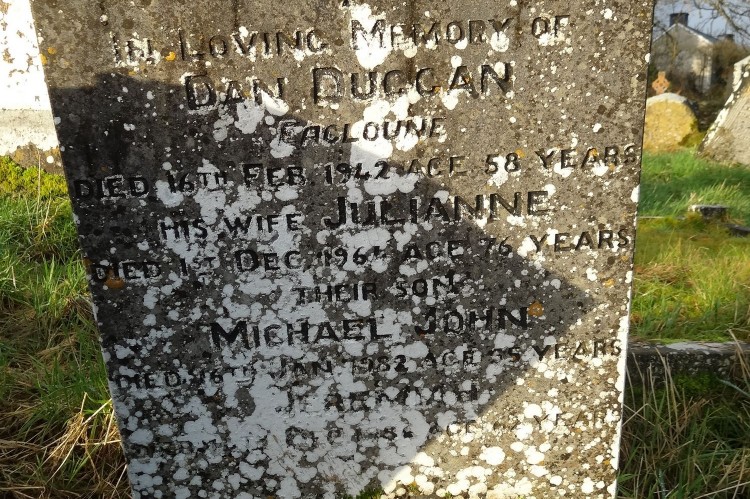 IN LOVING MEMORY OF
DAN DUGGAN
EAGLOUNE
DIED 16TH FEB. 1942 AGE 58 YEARS
HIS WIFE JULIANNE
DIED 1ST DEC. 1964 AGE 76 YEARS
THEIR SON
MICHAEL JOHN
DIED JAN 1982 AGE YEARS
AGE YEARS